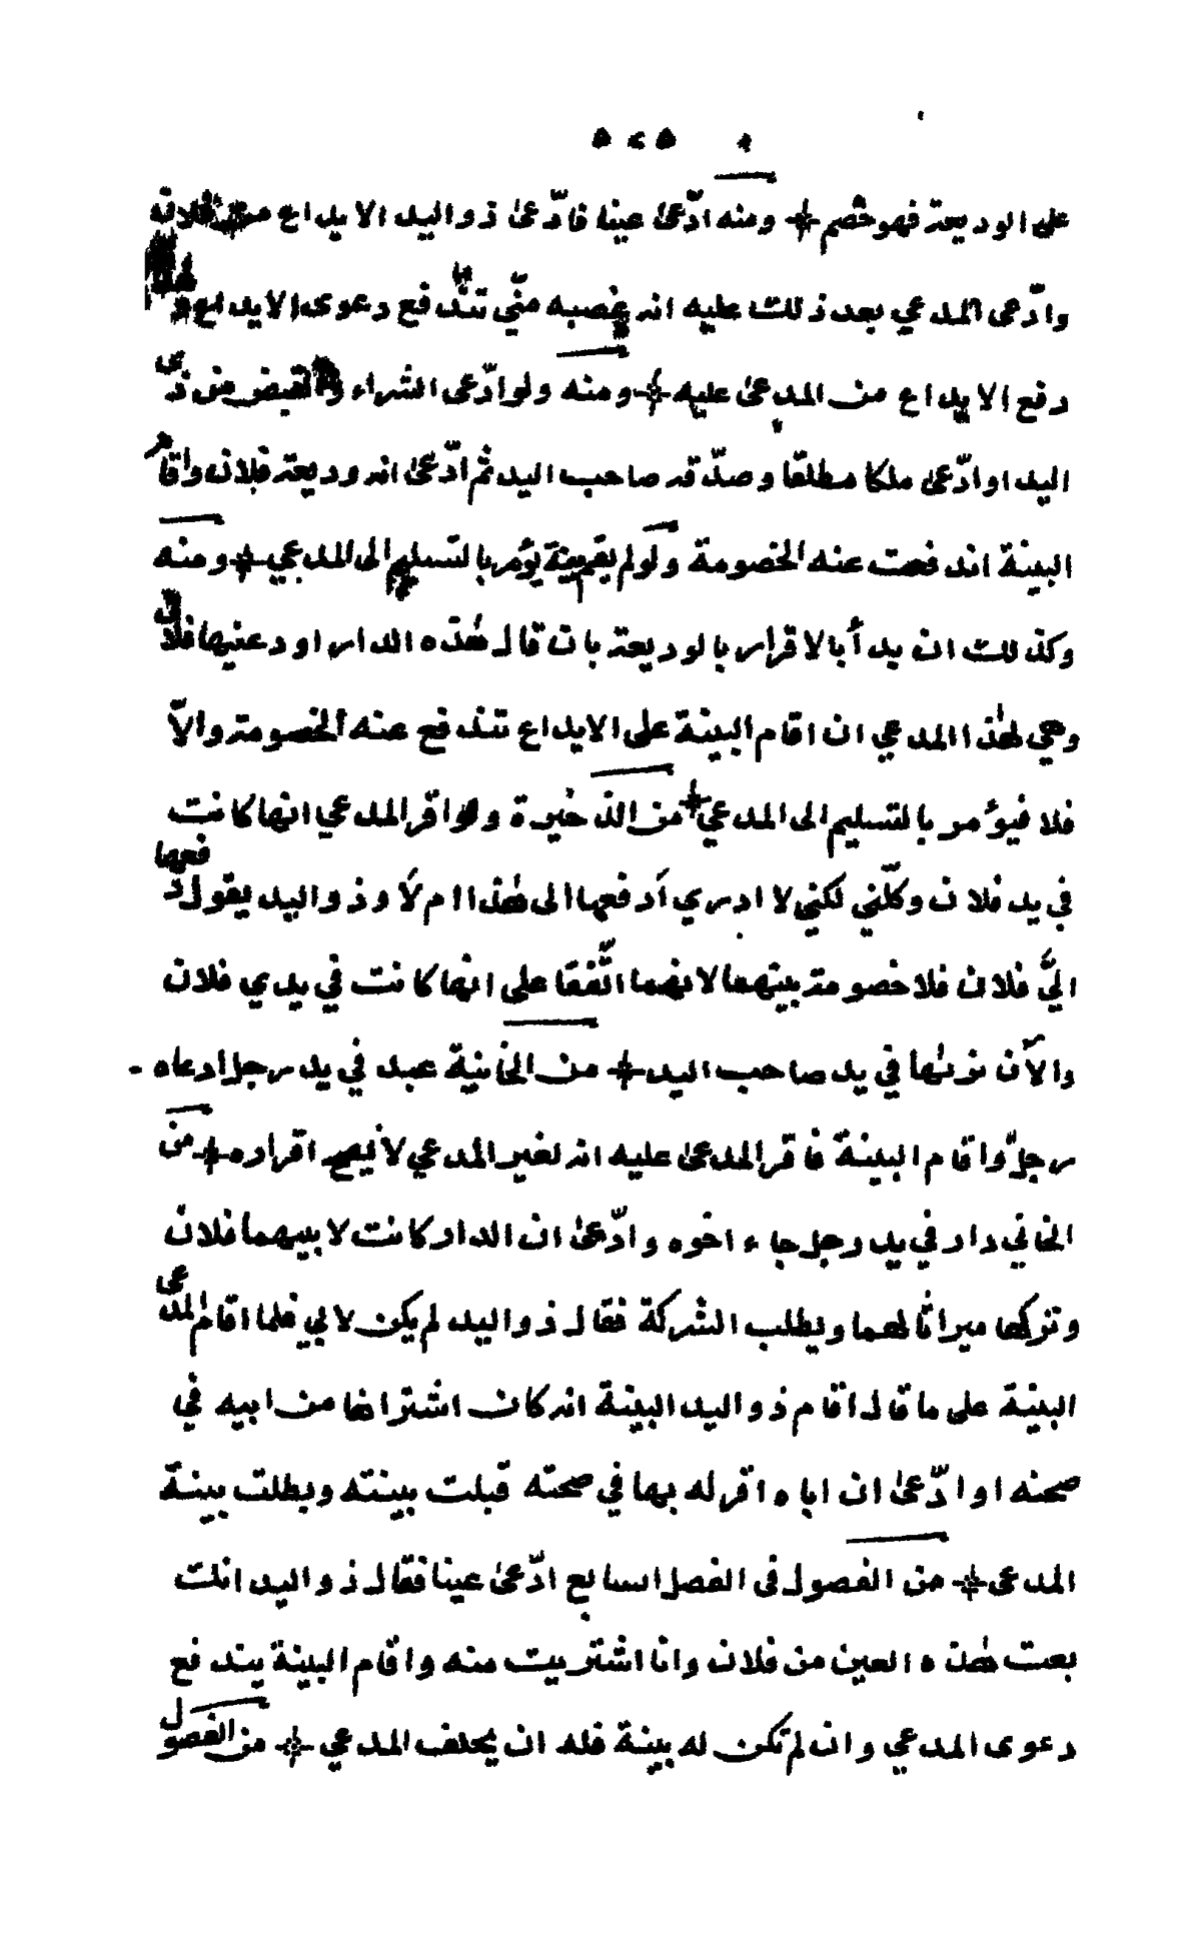 ٥٢٥
على الوديعة فهو خصم ومنه ادّعىٰ عينا فادّعىٰ ذو اليد الايداع من فلان
وادّعى المدعي بعد ذلك عليه انه غصبه منّي تندفع دعوى الايداع
دفع الايداع من المدعىٰ عليه ومنه ولو ادّعى الشراء والقبض من ذى
اليد او ادّعىٰ ملكا مطلقا وصدّقه صاحب اليد ثم ادّعىٰ انه وديعة فلان واقام
البينة اندفعت عنه الخصومة ولو لم يقم بينة يؤمر بالتسليم الى المدعي ومنه
وكذلك ان بدأ بالاقرار بالوديعة بان قال هٰذه الدار اودعنيها فلان
وهي لهٰذا المدعي ان اقام البينة على الايداع تندفع عنه الخصومة والاّ
فلا فيؤمر بالتسليم الى المدعي من الذخيرة ولو اقر المدعي انها كانت
في يد فلان وكلّني لكني لا ادري أدفعها الى هٰذا ام لا وذو اليد يقول دفعها
اليَّ فلان فلا خصومة بينهما لانهما اتّفقا على انها كانت في يدي فلان
والآن نرٰها في يد صاحب اليد من الخانية عبد في يد رجل ادعاه
رجل واقام البينة فاقر المدعىٰ عليه انه لغير المدعي لا يصح اقراره من
الخاني دار في يد رجل جاء اخوه وادّعىٰ ان الدار كانت لابيهما فلان
وتركها ميراثا لهما ويطلب الشركة فقال ذو اليد لم يكن لابي فلما اقام المدّعى
البينة على ما قال اقام ذو اليد البينة انه كان اشتراها من ابيه في
صحته او ادّعىٰ ان اباه اقر له بها في صحته قبلت بينته وبطلت بينة
المدعى من الفصول فى الفصل السابع ادّعىٰ عينا فقال ذو اليد انك
بعت هٰذه العين من فلان وانا اشتريت منه واقام البينة يندفع
دعوى المدعي وان لم تكن له بينة فله ان يحلف المدعي من الفصول